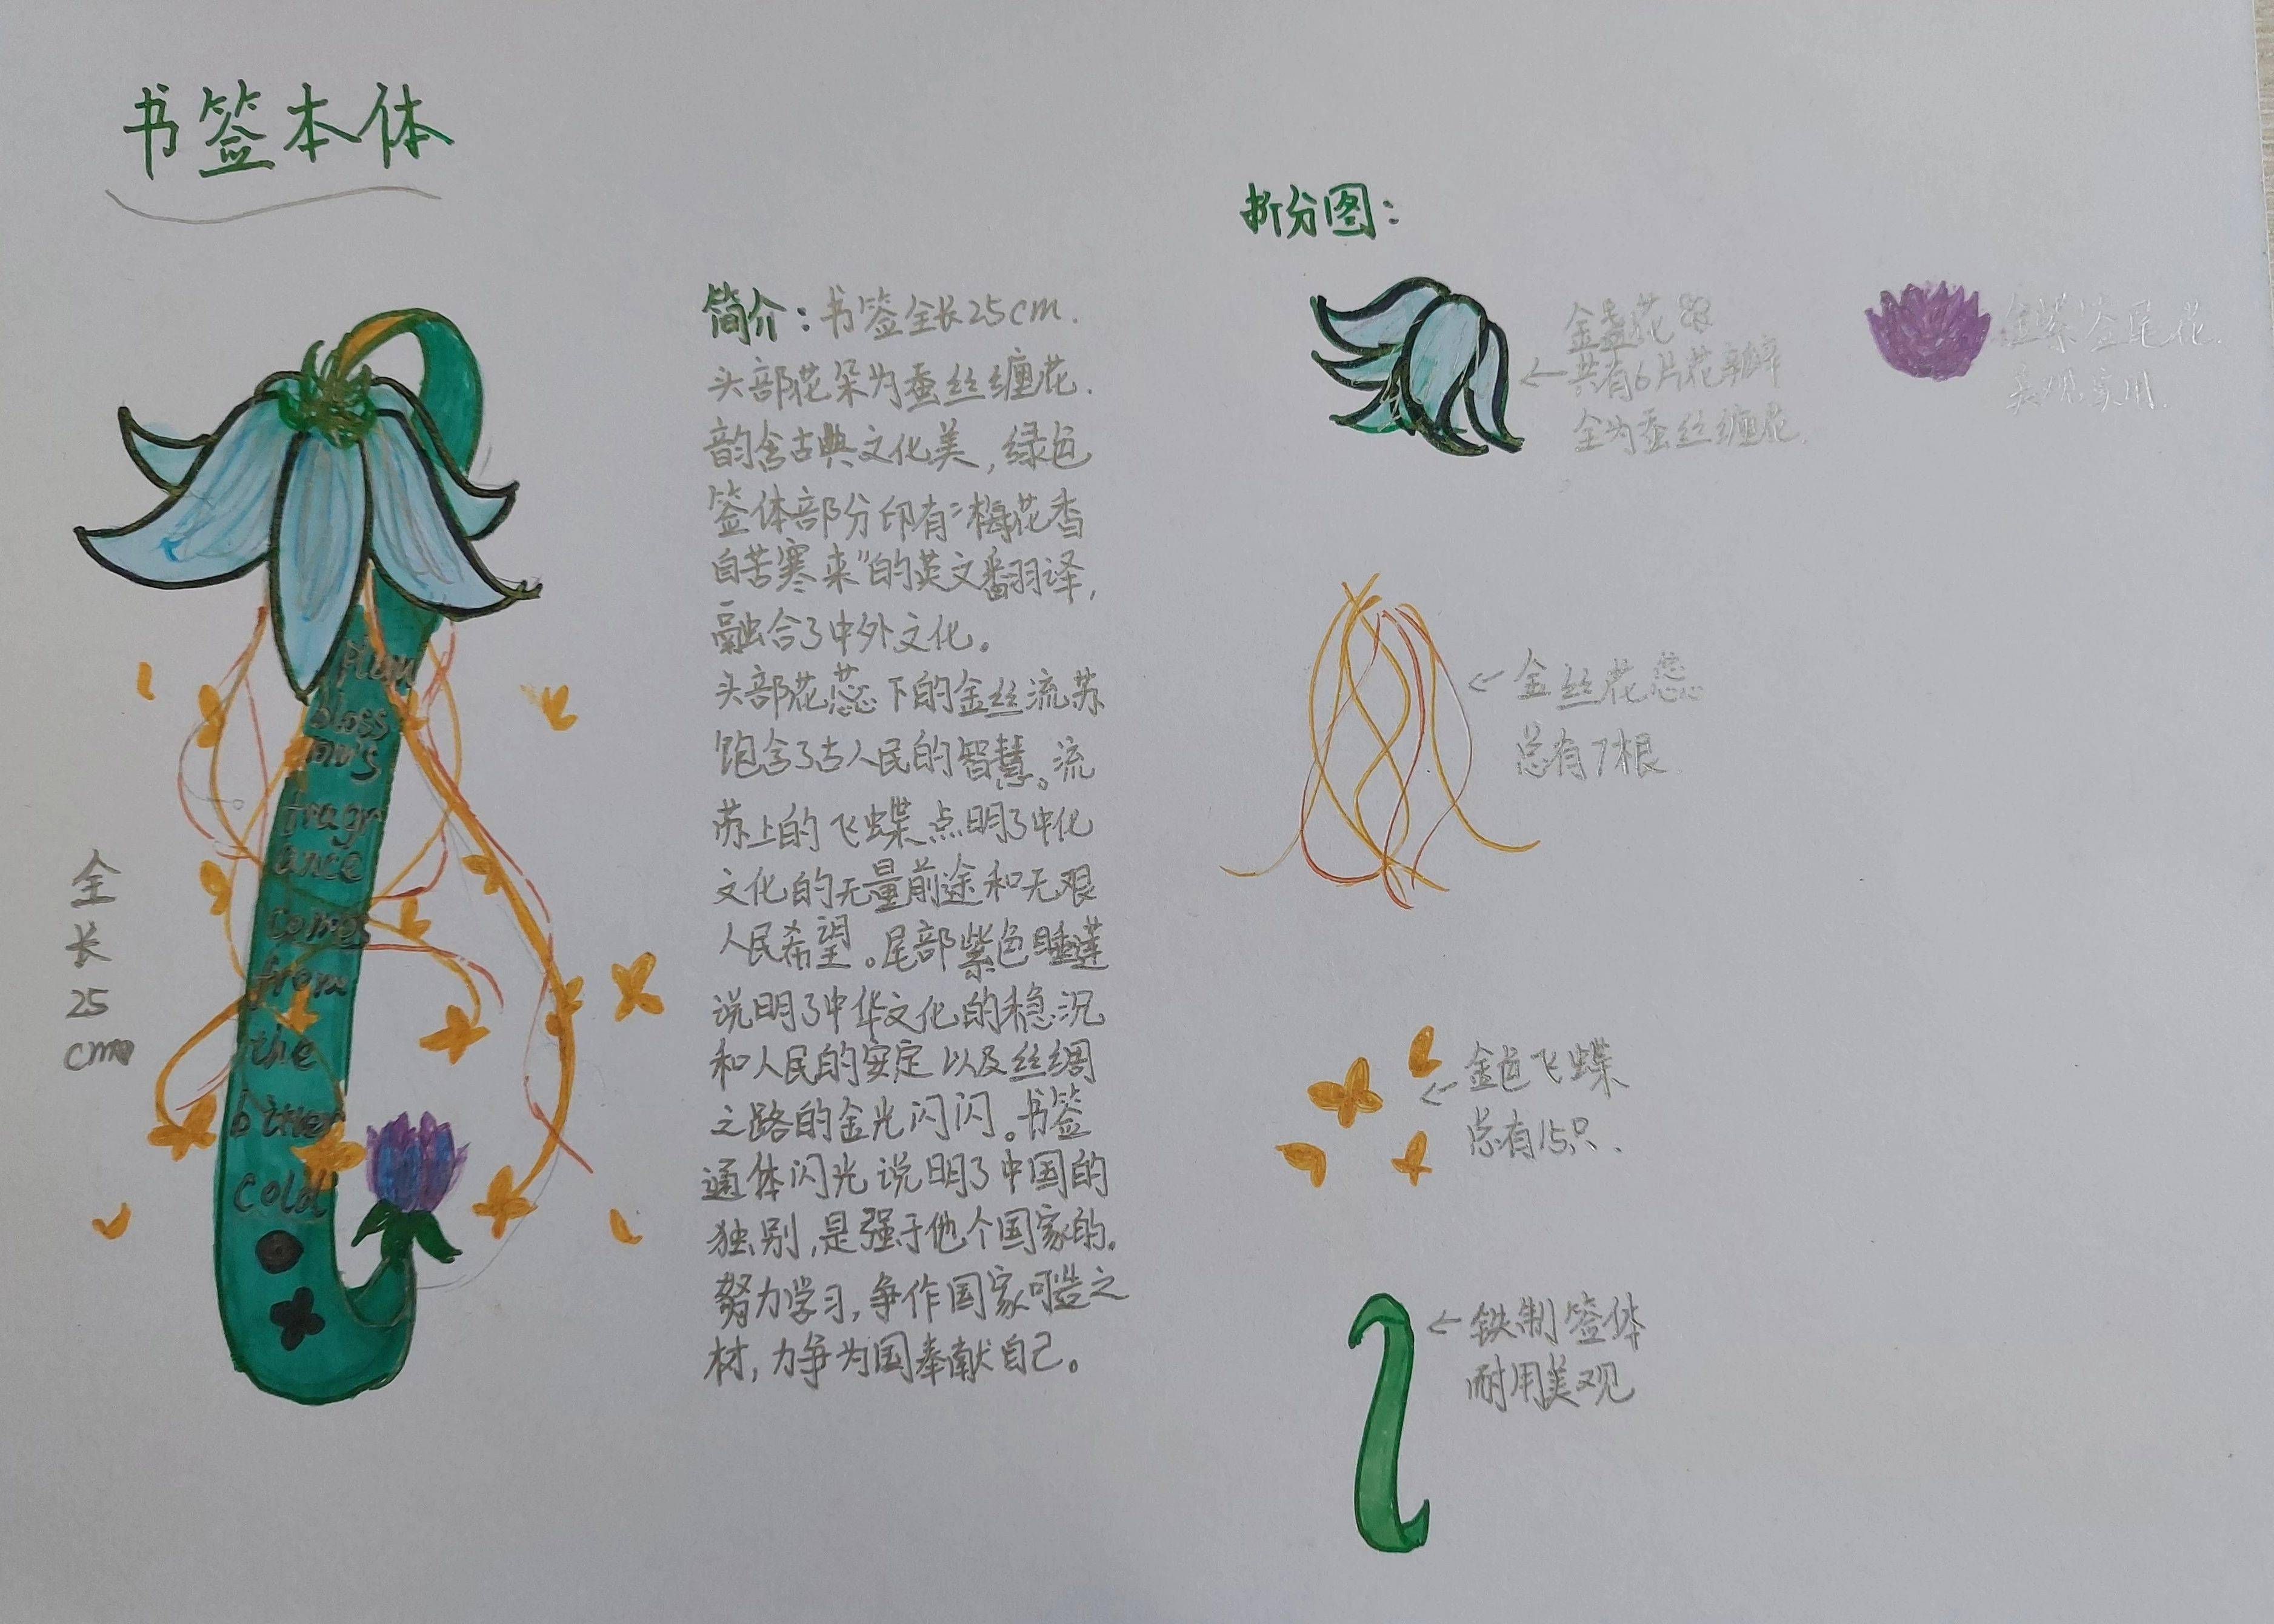 书签本体
全
长
25
cm
plum
bloss
oms
fragr
ance
comes
from
the
bitter
cold
简介：书签全长25cm.
头部花朵为蚕丝缠花.
韵含古典文化美，绿色
签体部分印有“梅花香
自苦寒来”的英文翻译,
融合了中外文化。
头部花蕊下的金丝流苏
饱含了古人民的智慧。流
苏上的飞蝶点明了中化
文化的无量前途和无艰
人民希望。尾部紫色睡莲
说明了中华文化的稳沉
和人民的安定以及丝绸
之路的金光闪闪。书签
通体闪光说明了中国的
独别，是强于他个国家的。
努力学习，争作国家可造之
材，力争为国奉献自己。
折分图：
金盏花
←共有6片花瓣
全为蚕丝缠花.
金紫签尾花.
美观实用.
←金丝花蕊
总有7根
←金色飞蝶
总有15只.
←铁制签体
耐用美观